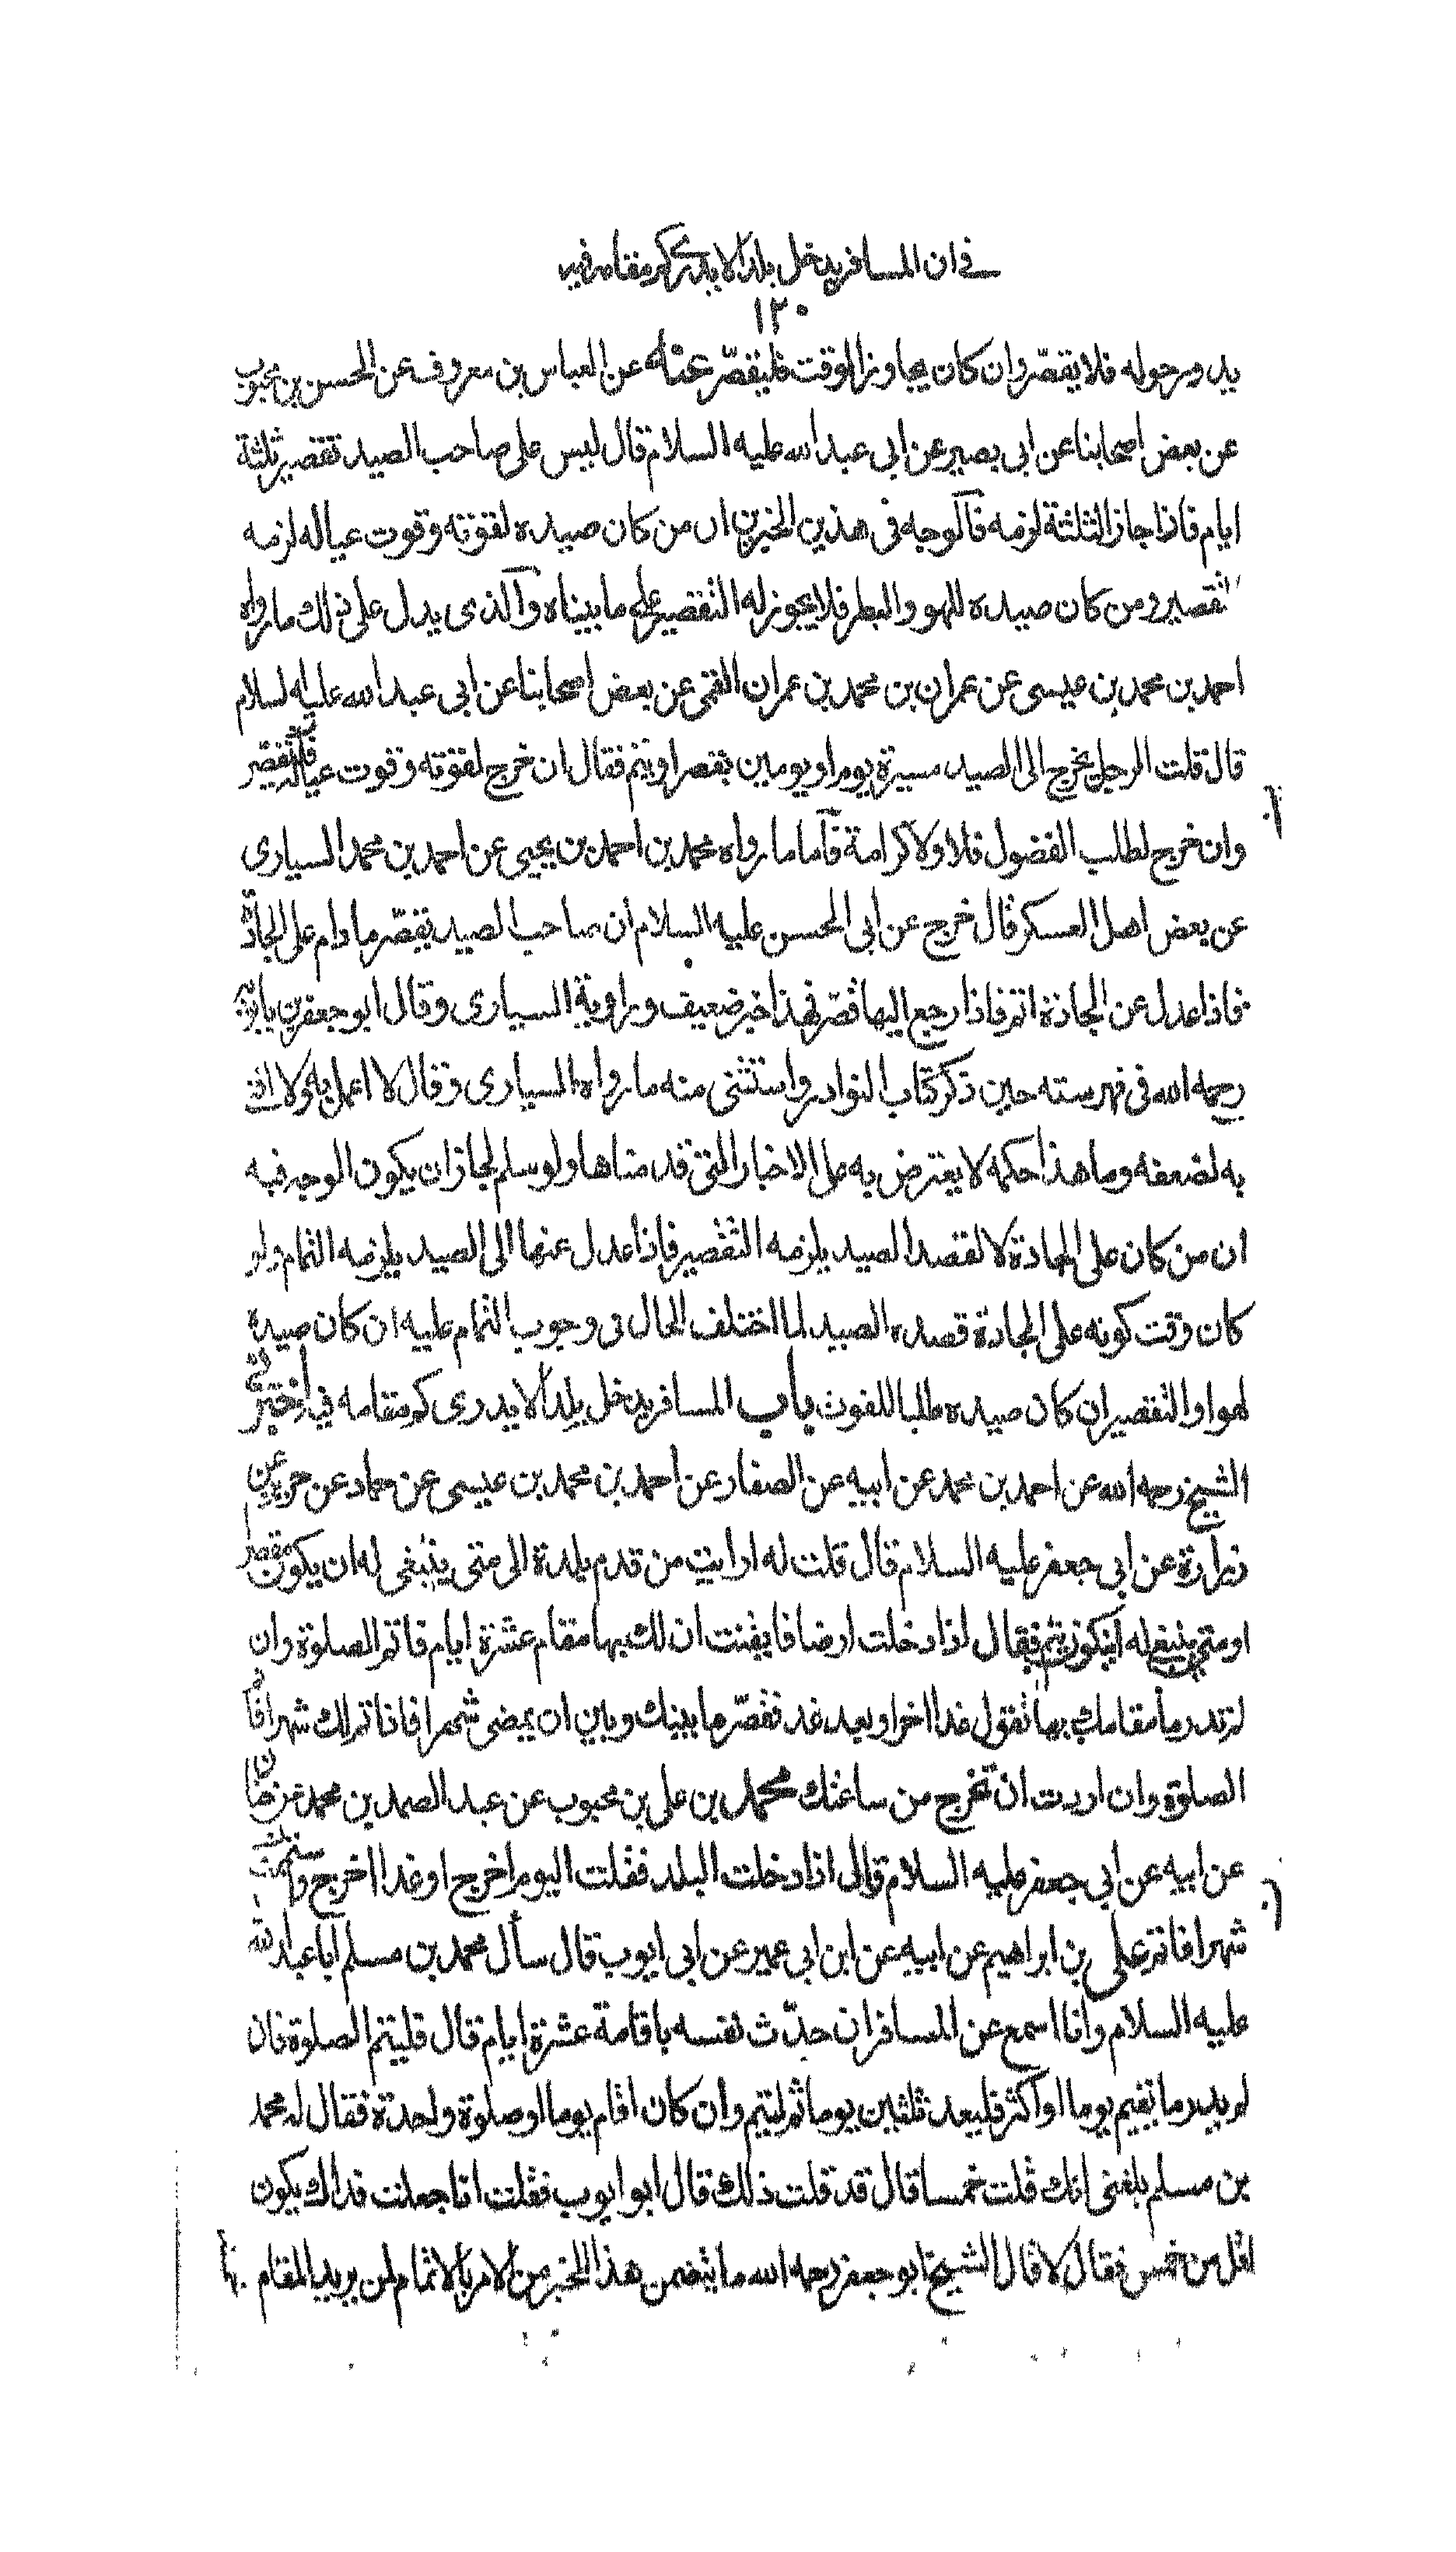 في ان المسافر يدخل بلدا لا يدري كم مقامه فيه
١٢٠
يدور حوله فلا يقصّر وان كان يجاوز الوقت فليقصّر عنه عن العباس بن معروف عن الحسن بن محبوب
عن بعض اصحابنا عن ابي بصير عن ابي عبد الله عليه السلام قال ليس على صاحب الصيد تقصير ثلثة
ايام فاذا جاز الثلثة لزمه فالوجه في هذين الخبرين ان من كان صيده لقوته وقوت عياله لزمه
التقصير ومن كان صيده للهو والبطر فلا يجوز له التقصير على ما بيناه والذي يدل على ذلك ما رواه
احمد بن محمد بن عيسى عن عمران بن محمد بن عمران القمي عن بعض اصحابنا عن ابي عبد الله عليه لسلام
قال قلت الرجل يخرج الى الصيد مسيرة يوم او يومين يقصر او يتم فقال ان خرج لقوته وقوت عياله فليقصر
وان خرج لطلب الفضول فلا ولا كرامة فاما ما رواه محمد بن احمد بن يحيى عن احمد بن محمد السياري
عن بعض اهل العسكر قال خرج عن ابي الحسن عليه السلام ان صاحب الصيد يقصّر ما دام على الجادّة
فاذا عدل عن الجادّة اتم فاذا رجع اليها قصّر فهذا خبر ضعيف وراويه السياري وقال ابو جعفر بن بابويه
رحمه الله في فهرسته حين ذكر كتاب النوادر واستثنى منه ما رواه السياري وقال لا اعمل به ولا افتي
به لضعفه وما هذا حكمه لا يعترض به على الاخبار التي قدمناها ولو سلم لجاز ان يكون الوجه فيه
ان من كان على الجادة لا لقصد الصيد يلزمه التقصير فاذا عدل عنها الى الصيد يلزمه التمام ولو
كان وقت كونه على الجادة قصده الصيد لما اختلف الحال في وجوب التمام عليه ان كان صيده
لهوا والتقصير ان كان صيده طلبا للقوت باب المسافر يدخل بلدا لا يدري كم مقامه فيه اخبرني
الشيخ رحمه الله عن احمد بن محمد عن ابيه عن الصفار عن احمد بن محمد بن عيسى عن حماد عن حريز عن
زرارة عن ابي جعفر عليه السلام قال قلت له ارايت من قدم بلدة الى متى ينبغي له ان يكون مقصرا
او متى ينبغي له ان يكون يتم فقال اذا دخلت ارضا فايقنت ان لك بها مقام عشرة ايام فاتم الصلوة وان
لم تدر ما مقامك بها تقول غدا اخرج او بعد غد فقصّر ما بينك وبين ان يمضى شهر افاذا تم لك شهر فاتم
الصلوة وان اردت ان تخرج من ساعتك محمد بن علي بن محبوب عن عبد الصمد بن محمد عن حنان
عن ابيه عن ابي جعفر عليه السلام قال اذا دخلت البلد فقلت اليوم اخرج او غدا اخرج واستتممت
شهرا فاتم علي بن ابراهيم عن ابيه عن ابن ابي عمير عن ابي ايوب قال سأل محمد بن مسلم ابا عبد الله
عليه السلام وانا اسمع عن المسافر ان حدّث نفسه باقامة عشرة ايام قال فليتم الصلوة فان
لم يدر ما يقيم يوما او اكثر فليعد ثلثين يوما ثم ليتم وان كان اقام يوما او صلوة واحدة فقال له محمد
بن مسلم بلغني انك قلت خمسا قال قد قلت ذلك قال ابو ايوب فقلت انا جعلت فداك يكون
اقل من خمس فقال لا قال الشيخ ابو جعفر رحمه الله ما يتضمن هذا الخبر من الامر بالاتمام لمن يريد المقام